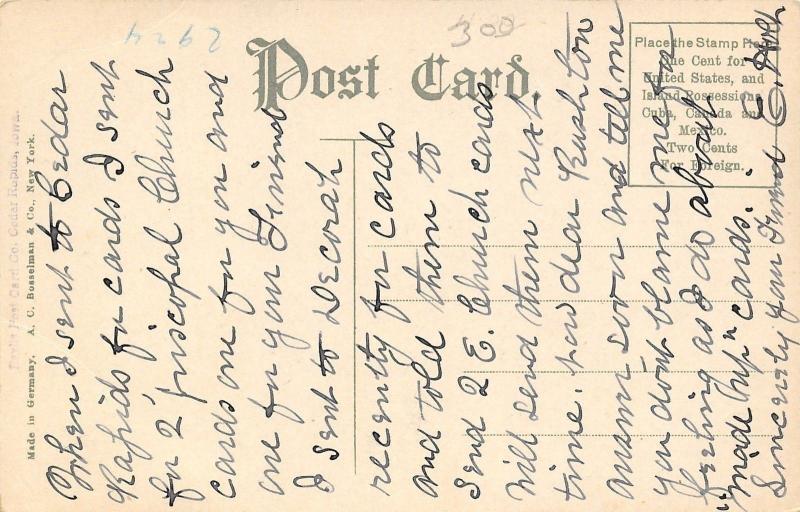 2924
300
Post Card.
Place the Stamp
One Cent for
United States, and
Island Possessions
Cuba, Canada and
Mexico.
Two Cents
For Foreign.
Post Card Co. Cedar Rapids, Iowa.
Made in Germany. A. C. Bosselman & Co., New York.
When I sent to Cedar
Rapids for cards I sent
for 2 'piscopal Church
cards one for you and
one for your Friend
I sent to Decorah
recently for cards
and told them to
send 2 E. Church cards
will send them next
time. now dear Rushton
answer soon and tell me
you don't blame me for
feeling as I do about
"made up" cards.
Sincerely your Friend E.